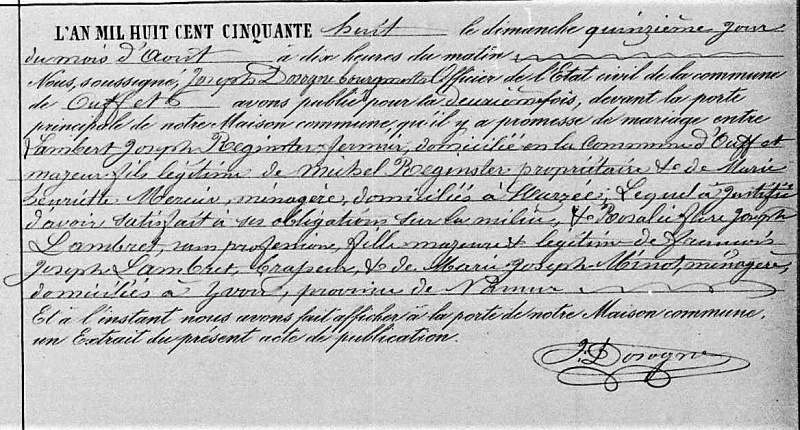 L'AN MIL HUIT CENT CINQUANTE huit le dimanche quinzième jour
du mois d'Aout à dix heures du matin
Nous, soussigné, Joseph Dosogne bourgmestre Officier de l'Etat civil de la commune
de Ouffet avons publié pour la deuxième fois, devant la porte
principale de notre Maison commune, qu'il y a promesse de mariage entre
Lambert Joseph Reginster fermier, domicilié en la Commune d'Ouffet
majeur fils légitime de Michel Reginster propriétaire & de Marie
henriette Mercier, ménagère, domiciliés à Harzée; Lequel à justifié
d'avoir satisfait à ses obligations sur la milice, & Rosalie flore Joseph
Lambret, sans profession, fille majeure & légitime de francois
Joseph Lambret, brasseur, & de Marie Joseph Minot, ménagère,
domiciliés à Yvoir, province de Namur
Et à l'instant nous avons fait afficher à la porte de notre Maison commune,
un Extrait du présent acte de publication.
J. Dosogne